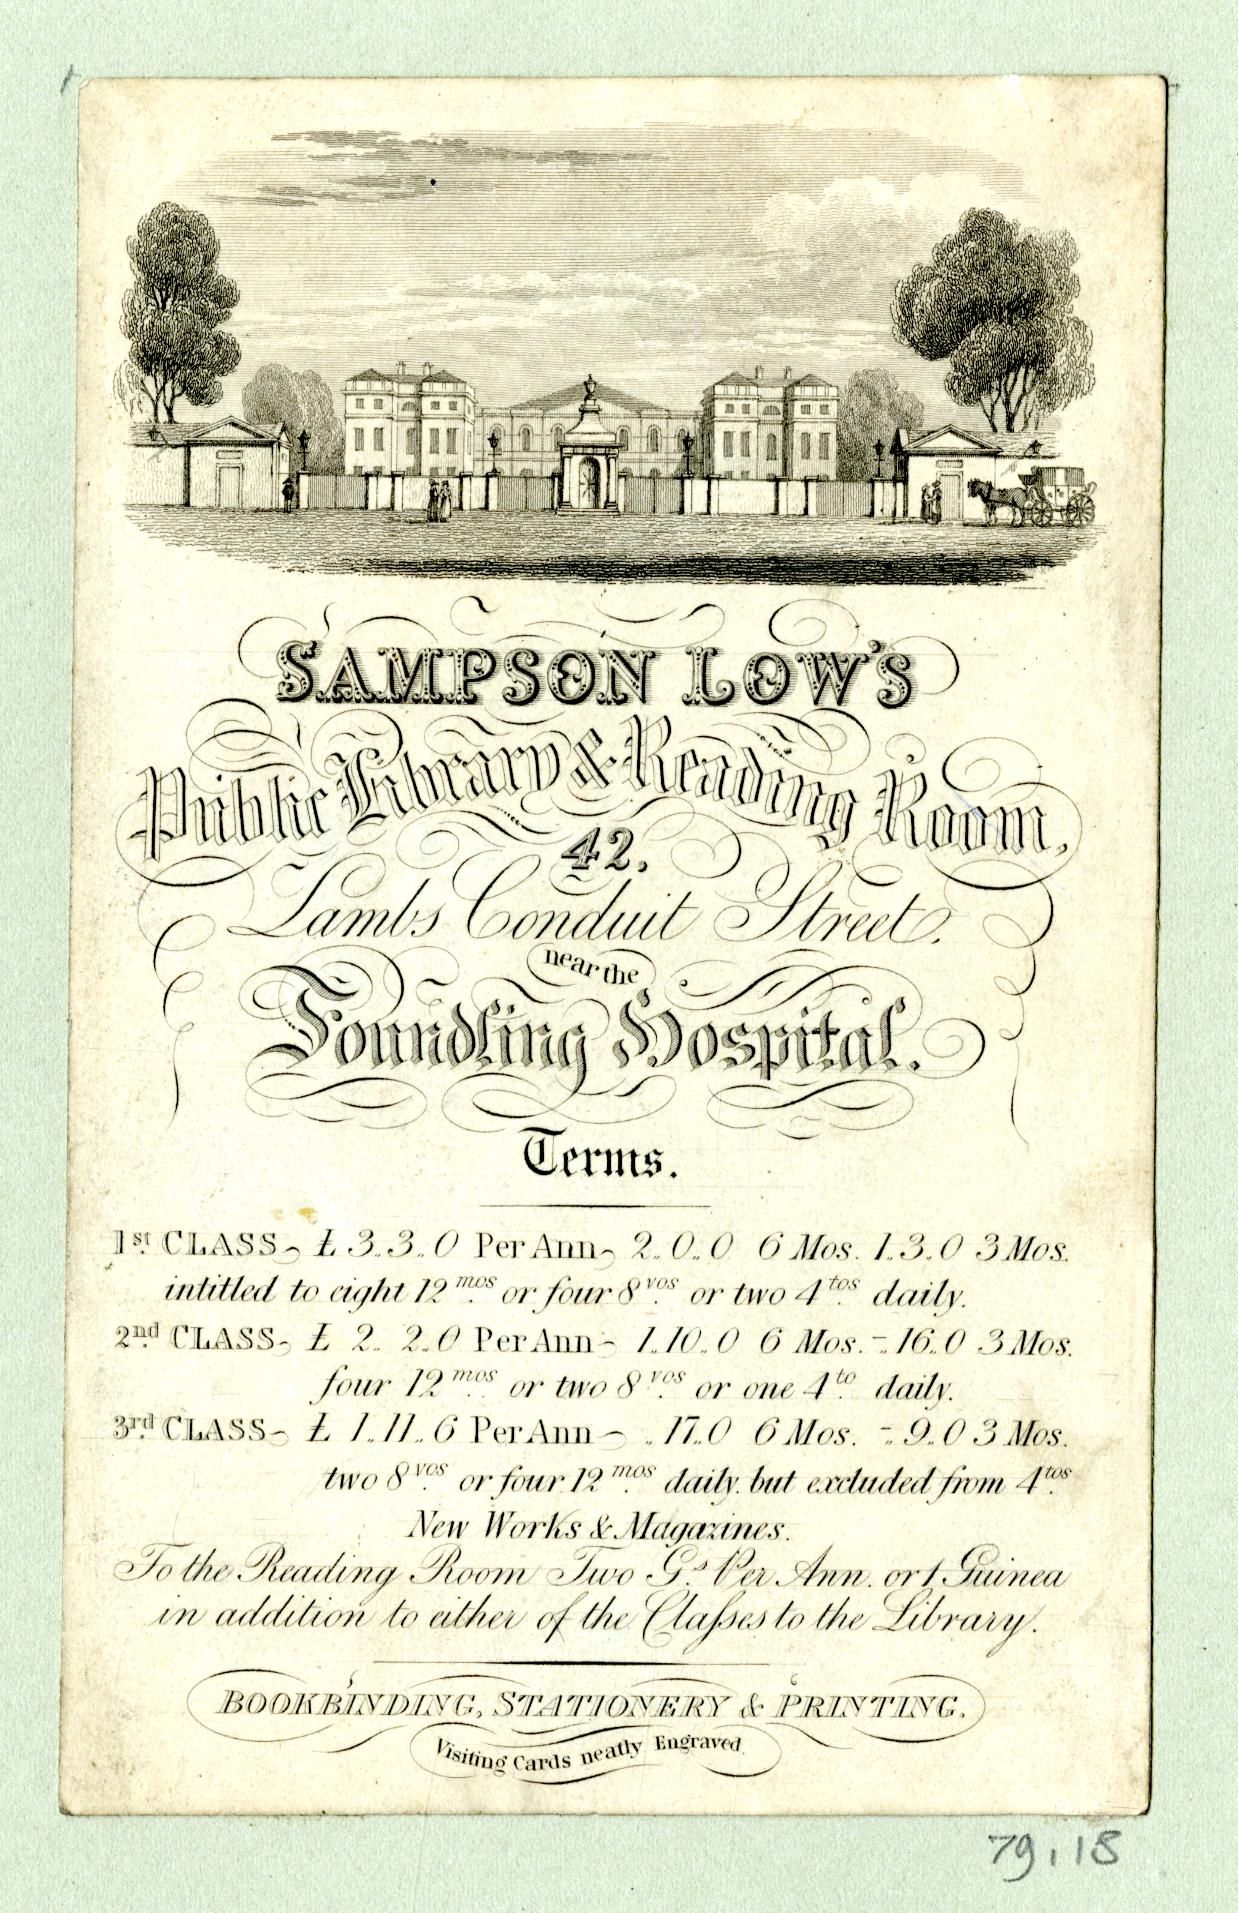 SAMPSON LOW'S
Public Library & Reading Room,
42,
Lambs Conduit Street.
near the
Foundling Hospital.
Terms.
1st. CLASS ~ £ 3..3..0 Per Ann ~ 2..0..0 6 Mos. 1..3..0 3 Mos.
intitled to eight 12mos. or four 8vos. or two 4tos. daily.
2nd. CLASS ~ £ 2..2..0 Per Ann ~ 1..10..0 6 Mos. -..16..0 3 Mos.
four 12mos. or two 8vos. or one 4to. daily.
3rd. CLASS ~ £ 1..11..6 Per Ann ~ ..17..0 6 Mos. -..9..0 3 Mos.
two 8vos. or four 12mos. daily. but excluded from 4tos.
New Works & Magazines.
To the Reading Room Two Gs. Per Ann. or 1 Guinea
in addition to either of the Claſses to the Library.
BOOKBINDING, STATIONERY & PRINTING.
Visiting Cards neatly Engraved.
79.18